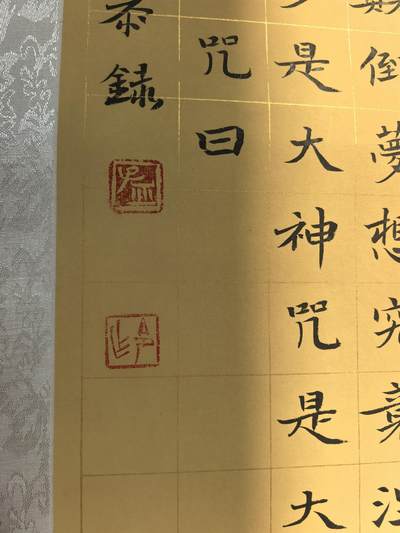 倒夢想究竟涅
是大神咒是大
咒曰
恭録